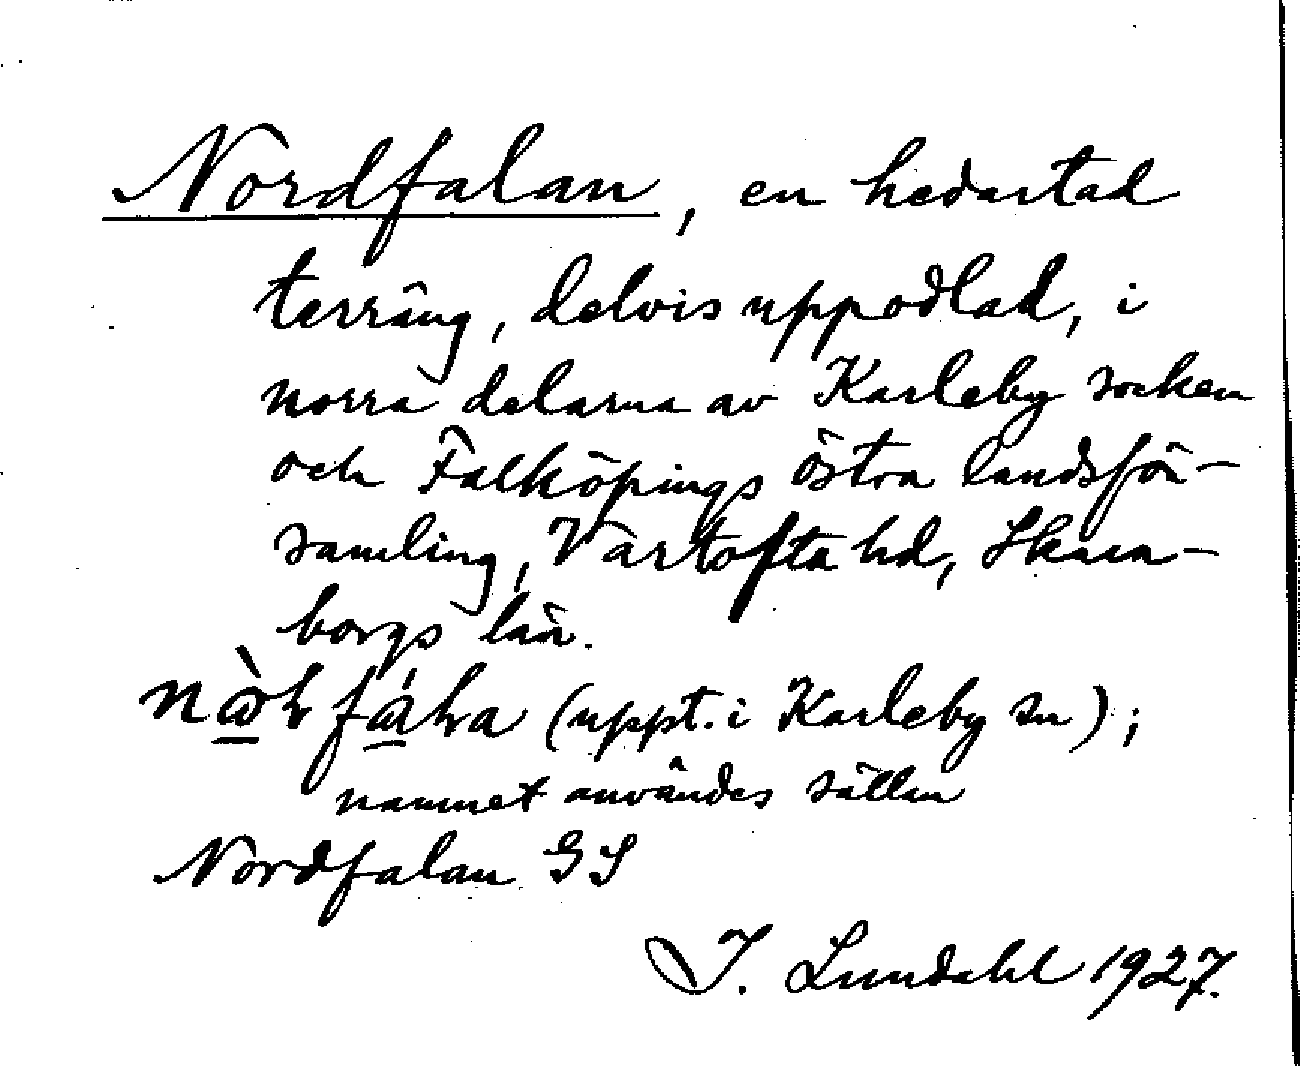 Nordfalan, en hedartad
terräng, delvis uppodlad, i
norra delarna av Karleby socken
och Falköpings östra landsför-
samling, Vartofta hd, Skara-
borgs län.
(uppt. i Karleby sn);
namnet användes sällan
Nordfalan GS
I. Lundahl 1927.